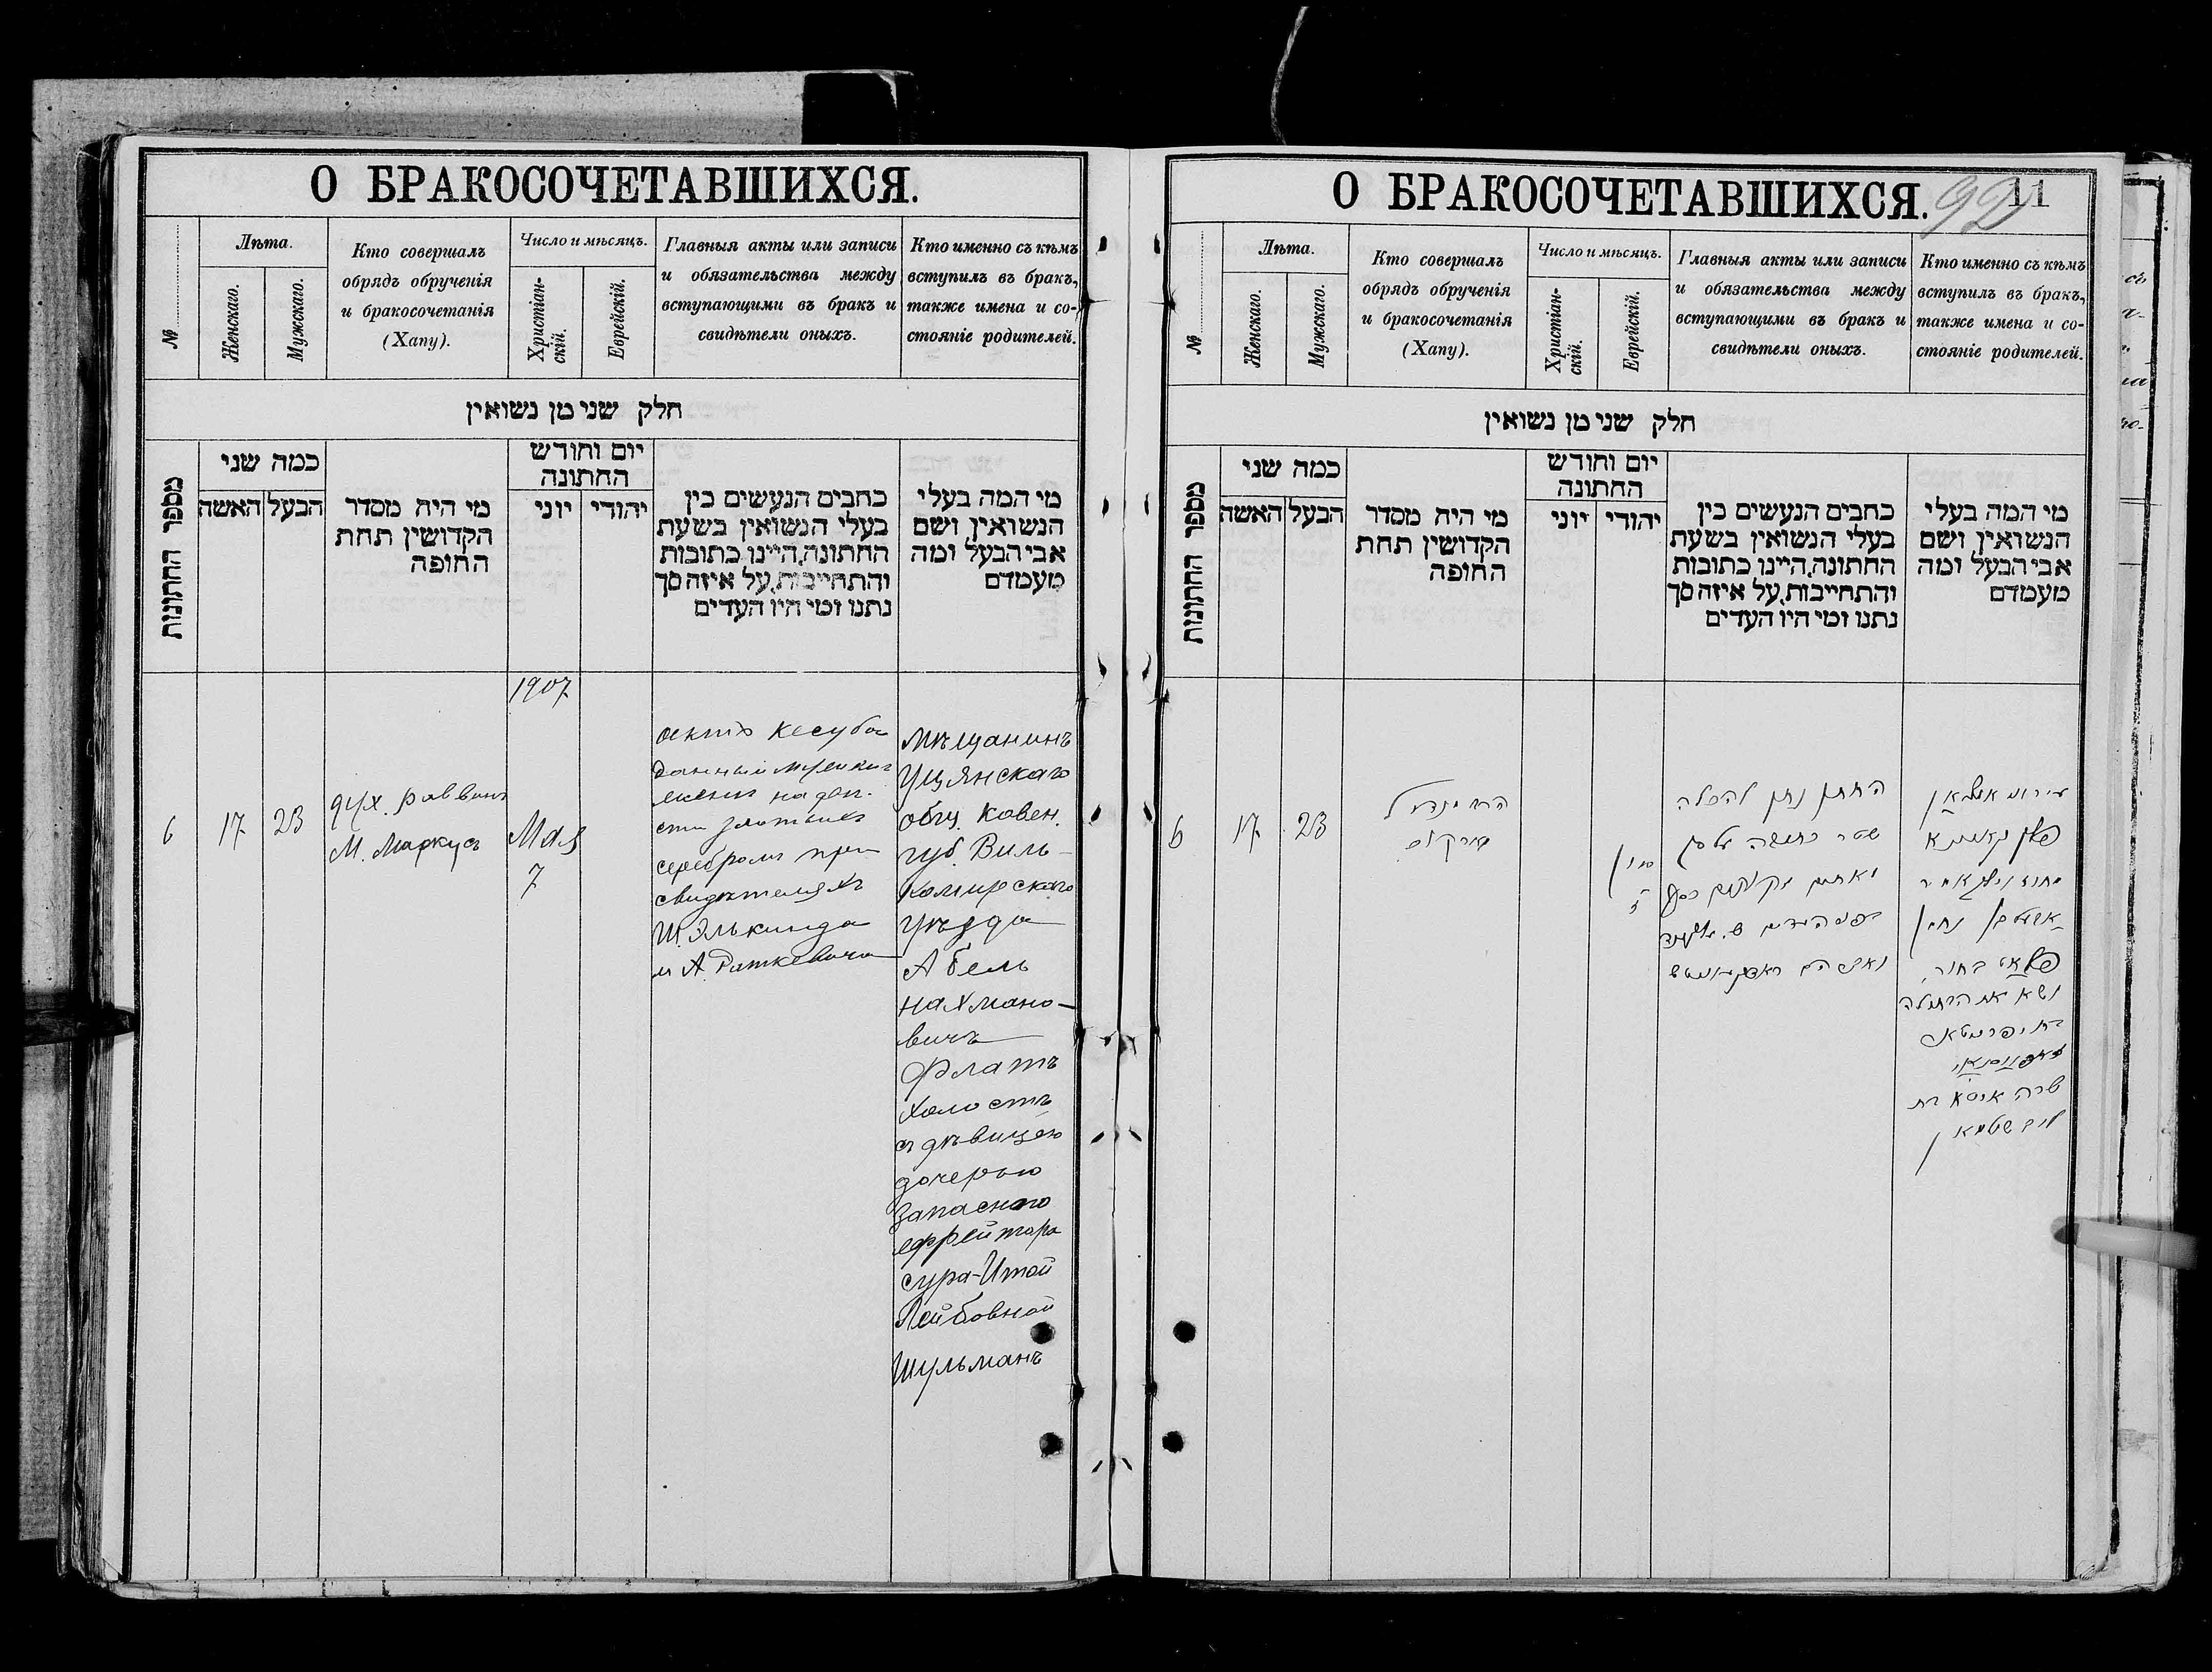 О БРАКОСОЧЕТАВШИХСЯ.
№
Лѣта.
Женскаго.
Мужскаго.
Кто совершалъ
обрядъ обрученія
и бракосочетанія
(Хапу).
Число и мѣсяцъ.
Христіан-
скій.
Еврейскій.
Главныя акты или записи
и обязательства между
вступающими въ бракъ и
свидѣтели оныхъ.
Кто именно съ кѣмъ
вступилъ въ бракъ,
также имена и со-
стояніе родителей.
חלק שני מן נשואין
מספר החתונות
כמה שני
האשה
הבעל
מי היה מסדר
הקדושין תחת
החופה
יום וחודש
החתונה
יוני
יהודי
כתבים הנעשים בין
בעלי הנשואין בשעת
החתונה, היינו כתובות
והתחייבות, על איזה סך
נתנו ומי היו העדים
מי המה בעלי
הנשואין ושם
אבי הבעל ומה
מעמדם
6
17
23
дух. раввинъ
М. Маркусъ
1907
Мая
7
актъ кесуба
данный
сти злотыхъ
серебромъ при
свидѣтеляхъ
Ш. Элькинда
и А. Раткевича
Мѣщанинъ
Уцянскаго
общ. Ковен.
губ. Виль-
комирскаго
уѣзда
Абель
Нахмано-
вичъ
Флатъ
холостъ
съ дѣвицею
дочерью
запаснаго
ефрейтора
Сура-Итой
Лейбовной
Шульманъ
О БРАКОСОЧЕТАВШИХСЯ.
92
11
№
Лѣта.
Женскаго.
Мужскаго.
Кто совершалъ
обрядъ обрученія
и бракосочетанія
(Хапу).
Число и мѣсяцъ.
Христіан-
скій.
Еврейскій.
Главныя акты или записи
и обязательства между
вступающими въ бракъ и
свидѣтели оныхъ.
Кто именно съ кѣмъ
вступилъ въ бракъ,
также имена и со-
стояніе родителей.
חלק שני מן נשואין
מספר החתונות
כמה שני
האשה
הבעל
מי היה מסדר
הקדושין תחת
החופה
יום וחודש
החתונה
יוני
יהודי
כתבים הנעשים בין
בעלי הנשואין בשעת
החתונה, היינו כתובות
והתחייבות, על איזה סך
נתנו ומי היו העדים
מי המה בעלי
הנשואין ושם
אבי הבעל ומה
מעמדם
6
17
23
מארקוס
סיון
החתן נתן להכלה
שטר כתובה על סך
זקוקים כסף
בפני העדים ש. עלקינד
פלאט בחור
נשא את הבתולה
שרה איטא בת
ליב שולמאן